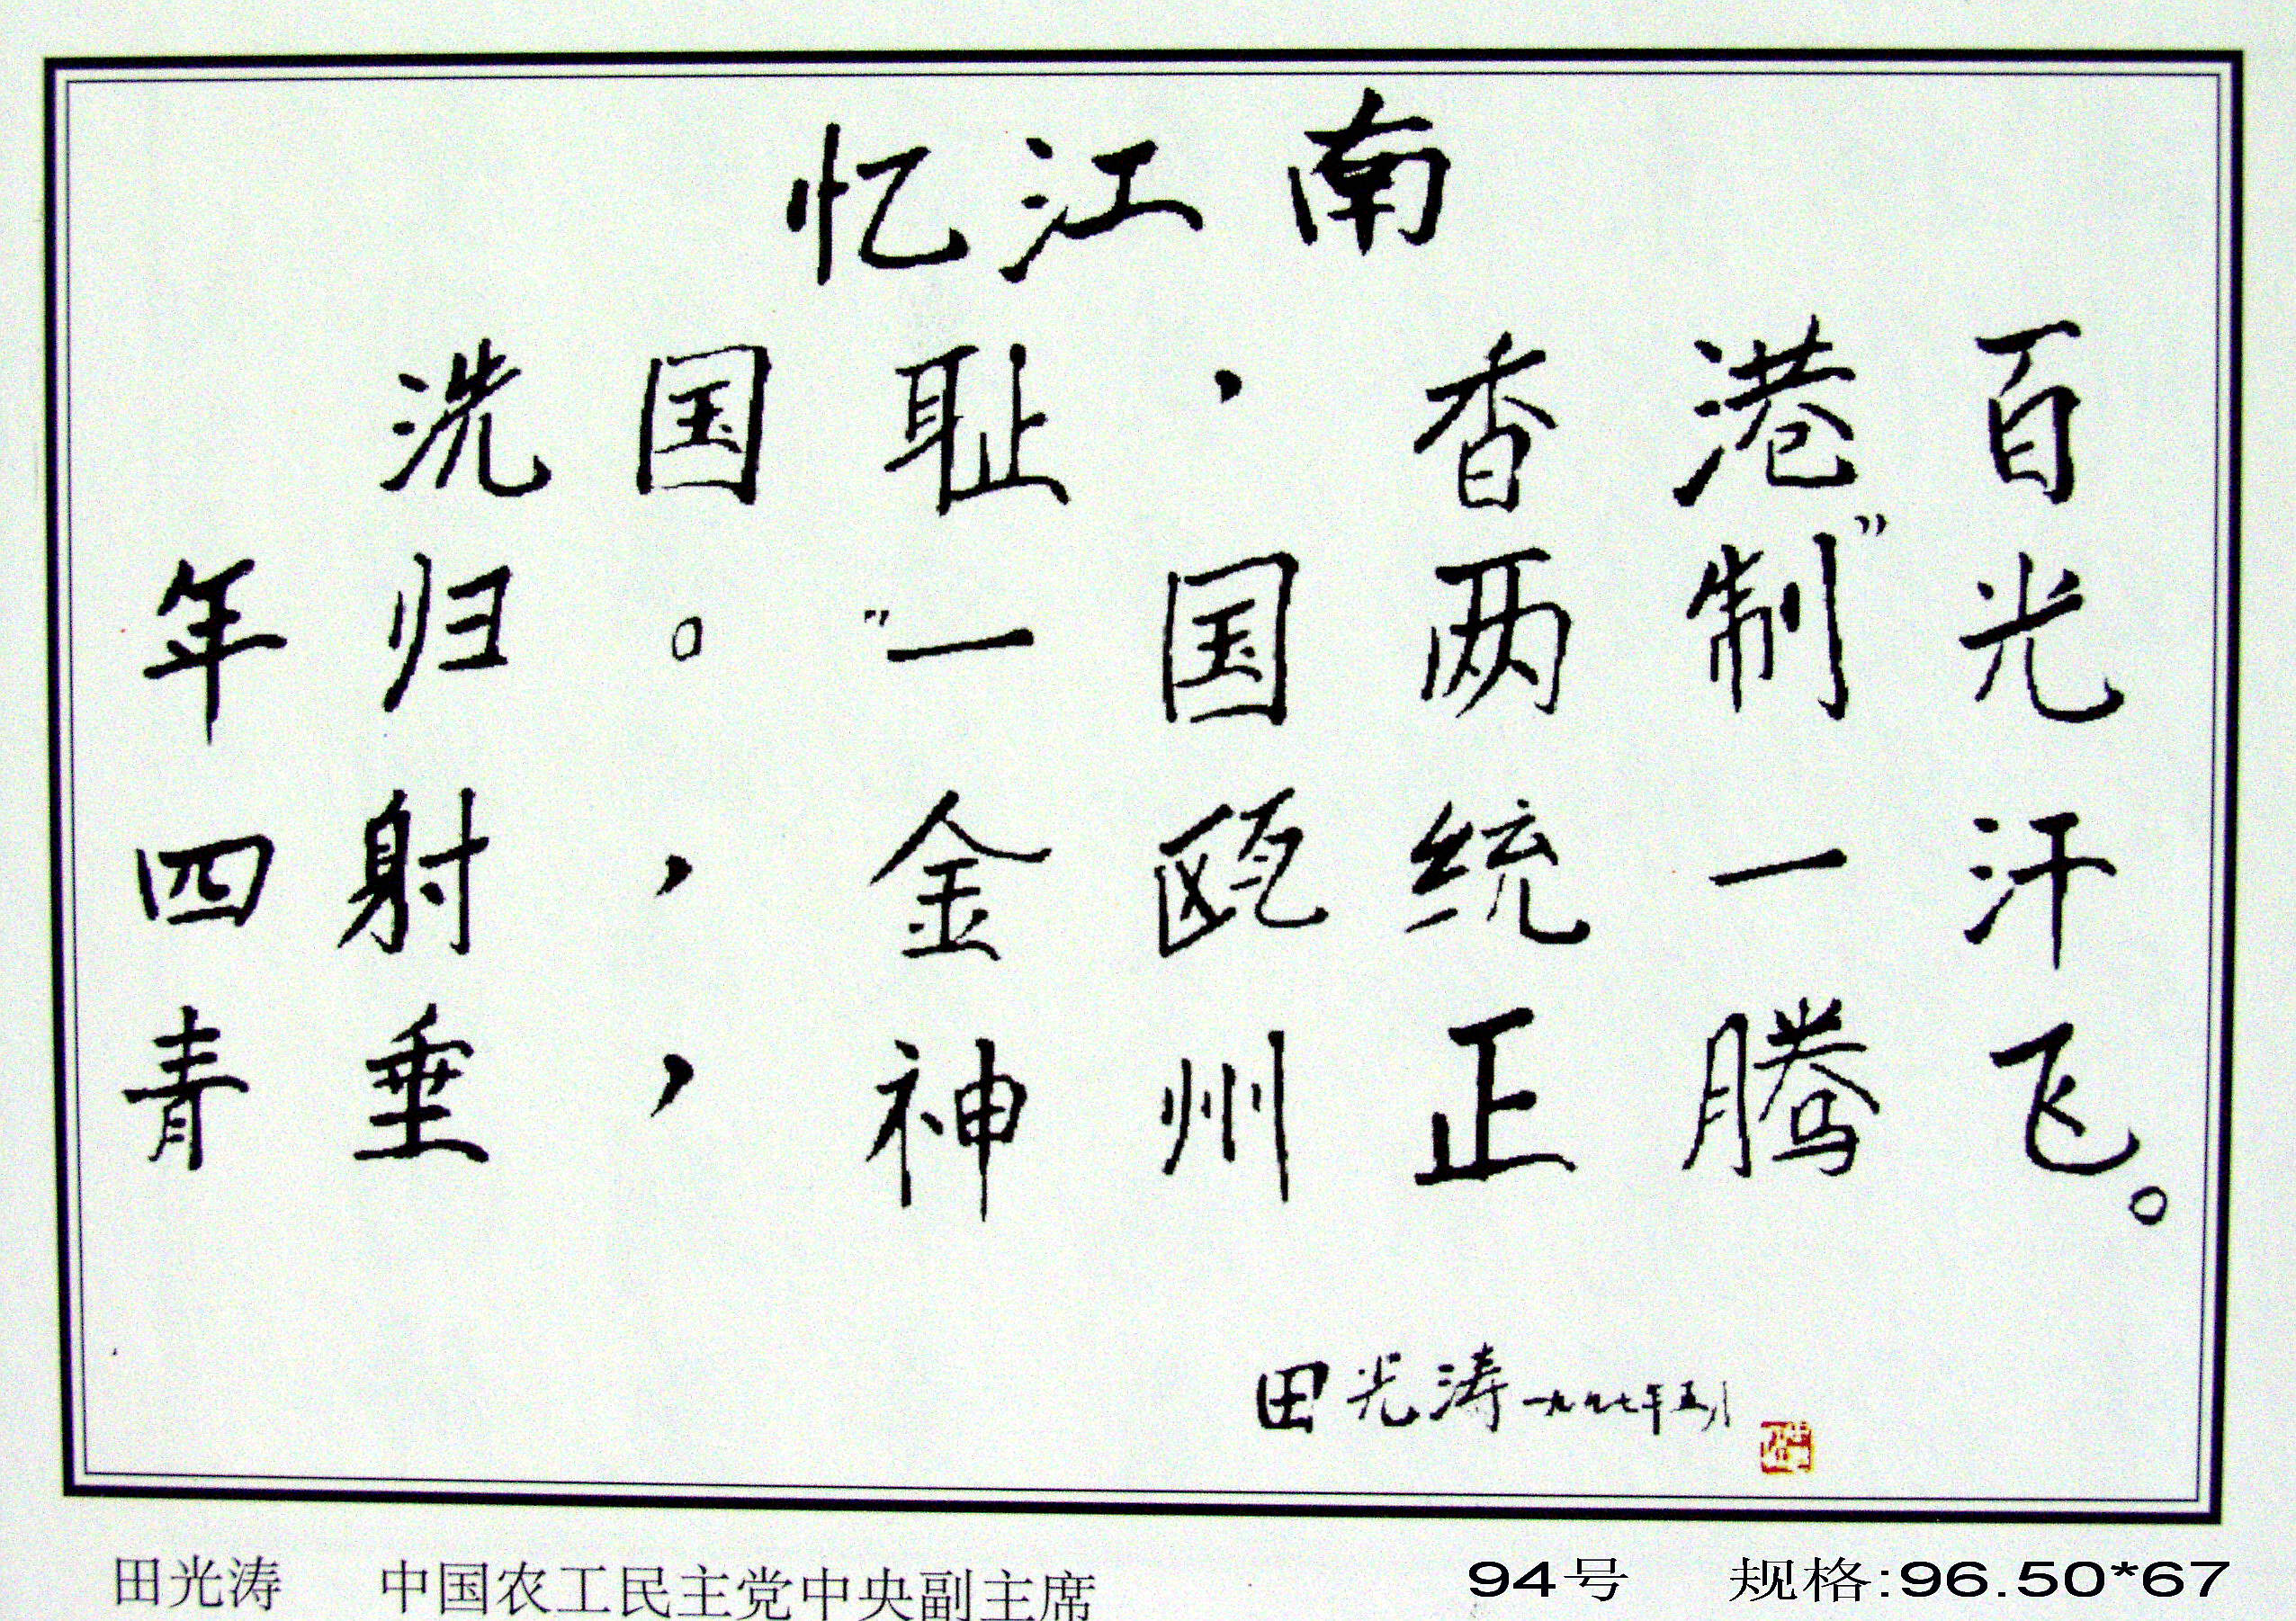 忆江南
洗国耻，香港百
年归。“一国两制”光
四射，金瓯统一汗
青垂，神州正腾飞。
田光涛 一九九七年五月
田光涛 中国农工民主党中央副主席 94号 规格:96.50*67